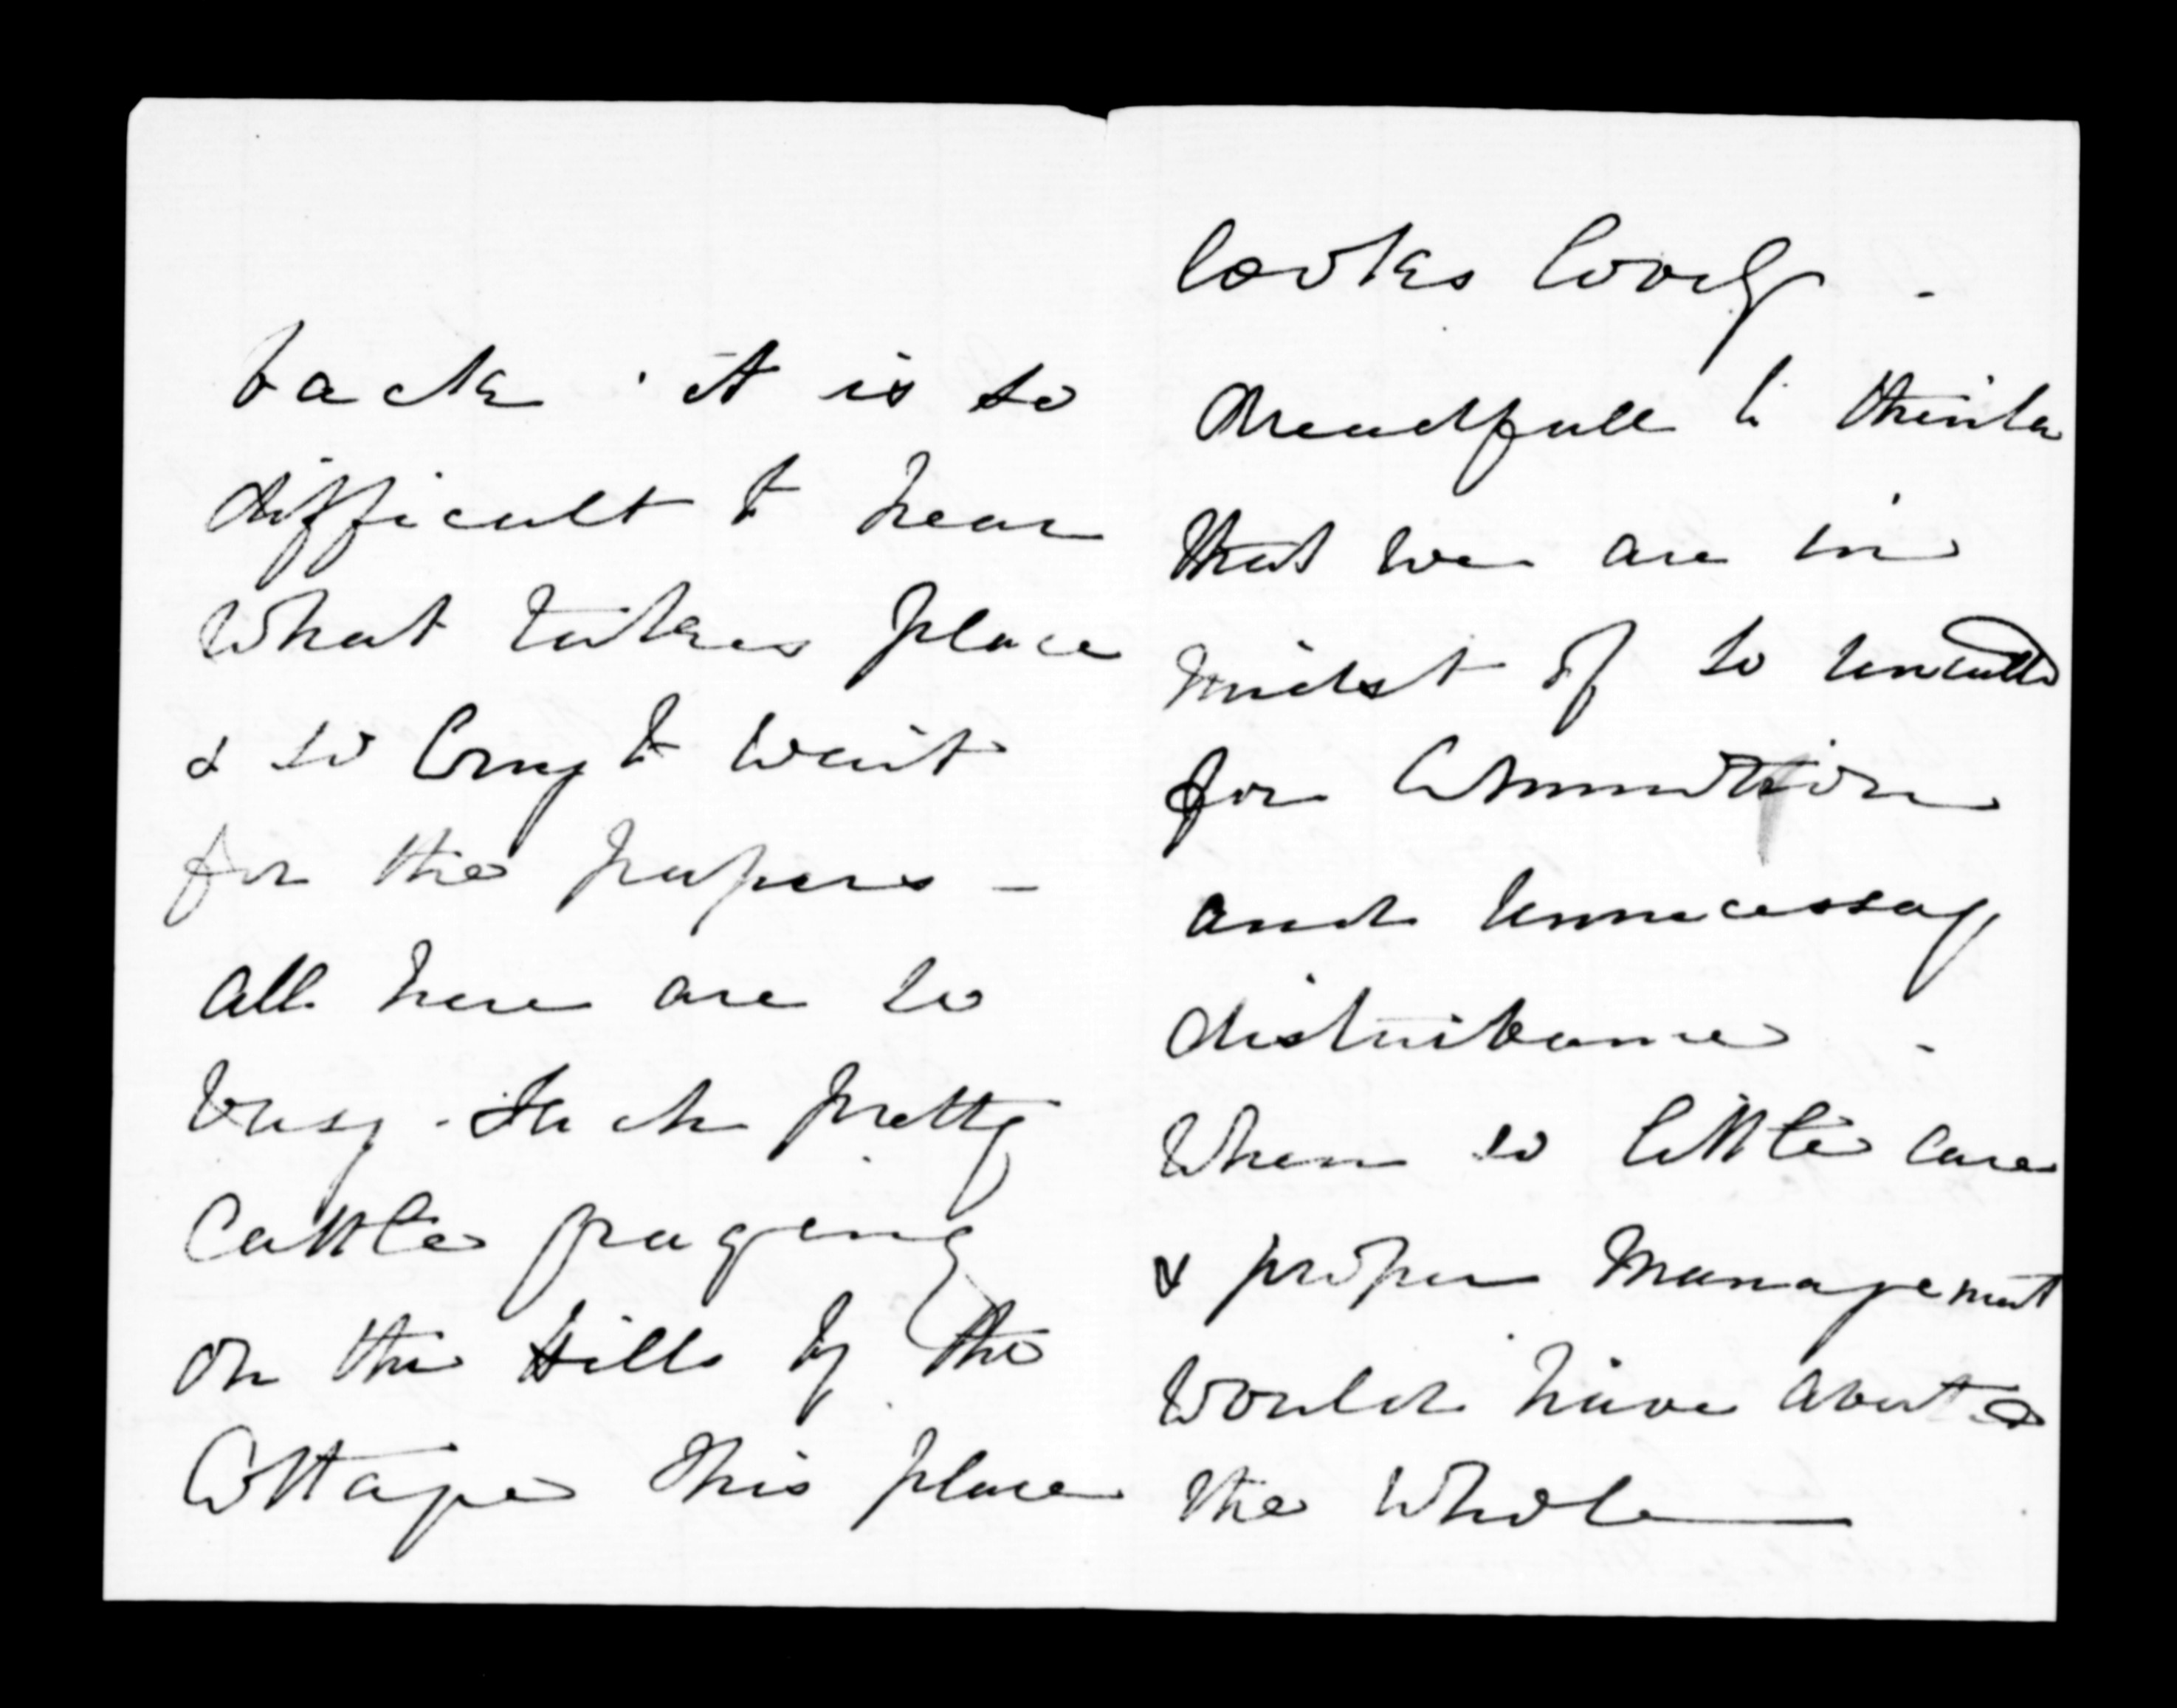 back. it is so
difficult to hear
what takes place
& so long to wait
for the papers -
all here are so
busy. Such pretty
Cattle grazing
on the Hills by the
Cottage this place
looks lovely.
dreadfull to think
that we are in
midst of so
for Commotion
and unnecessay
disturbance.
When so little care
& proper Management
Would have
the Whole